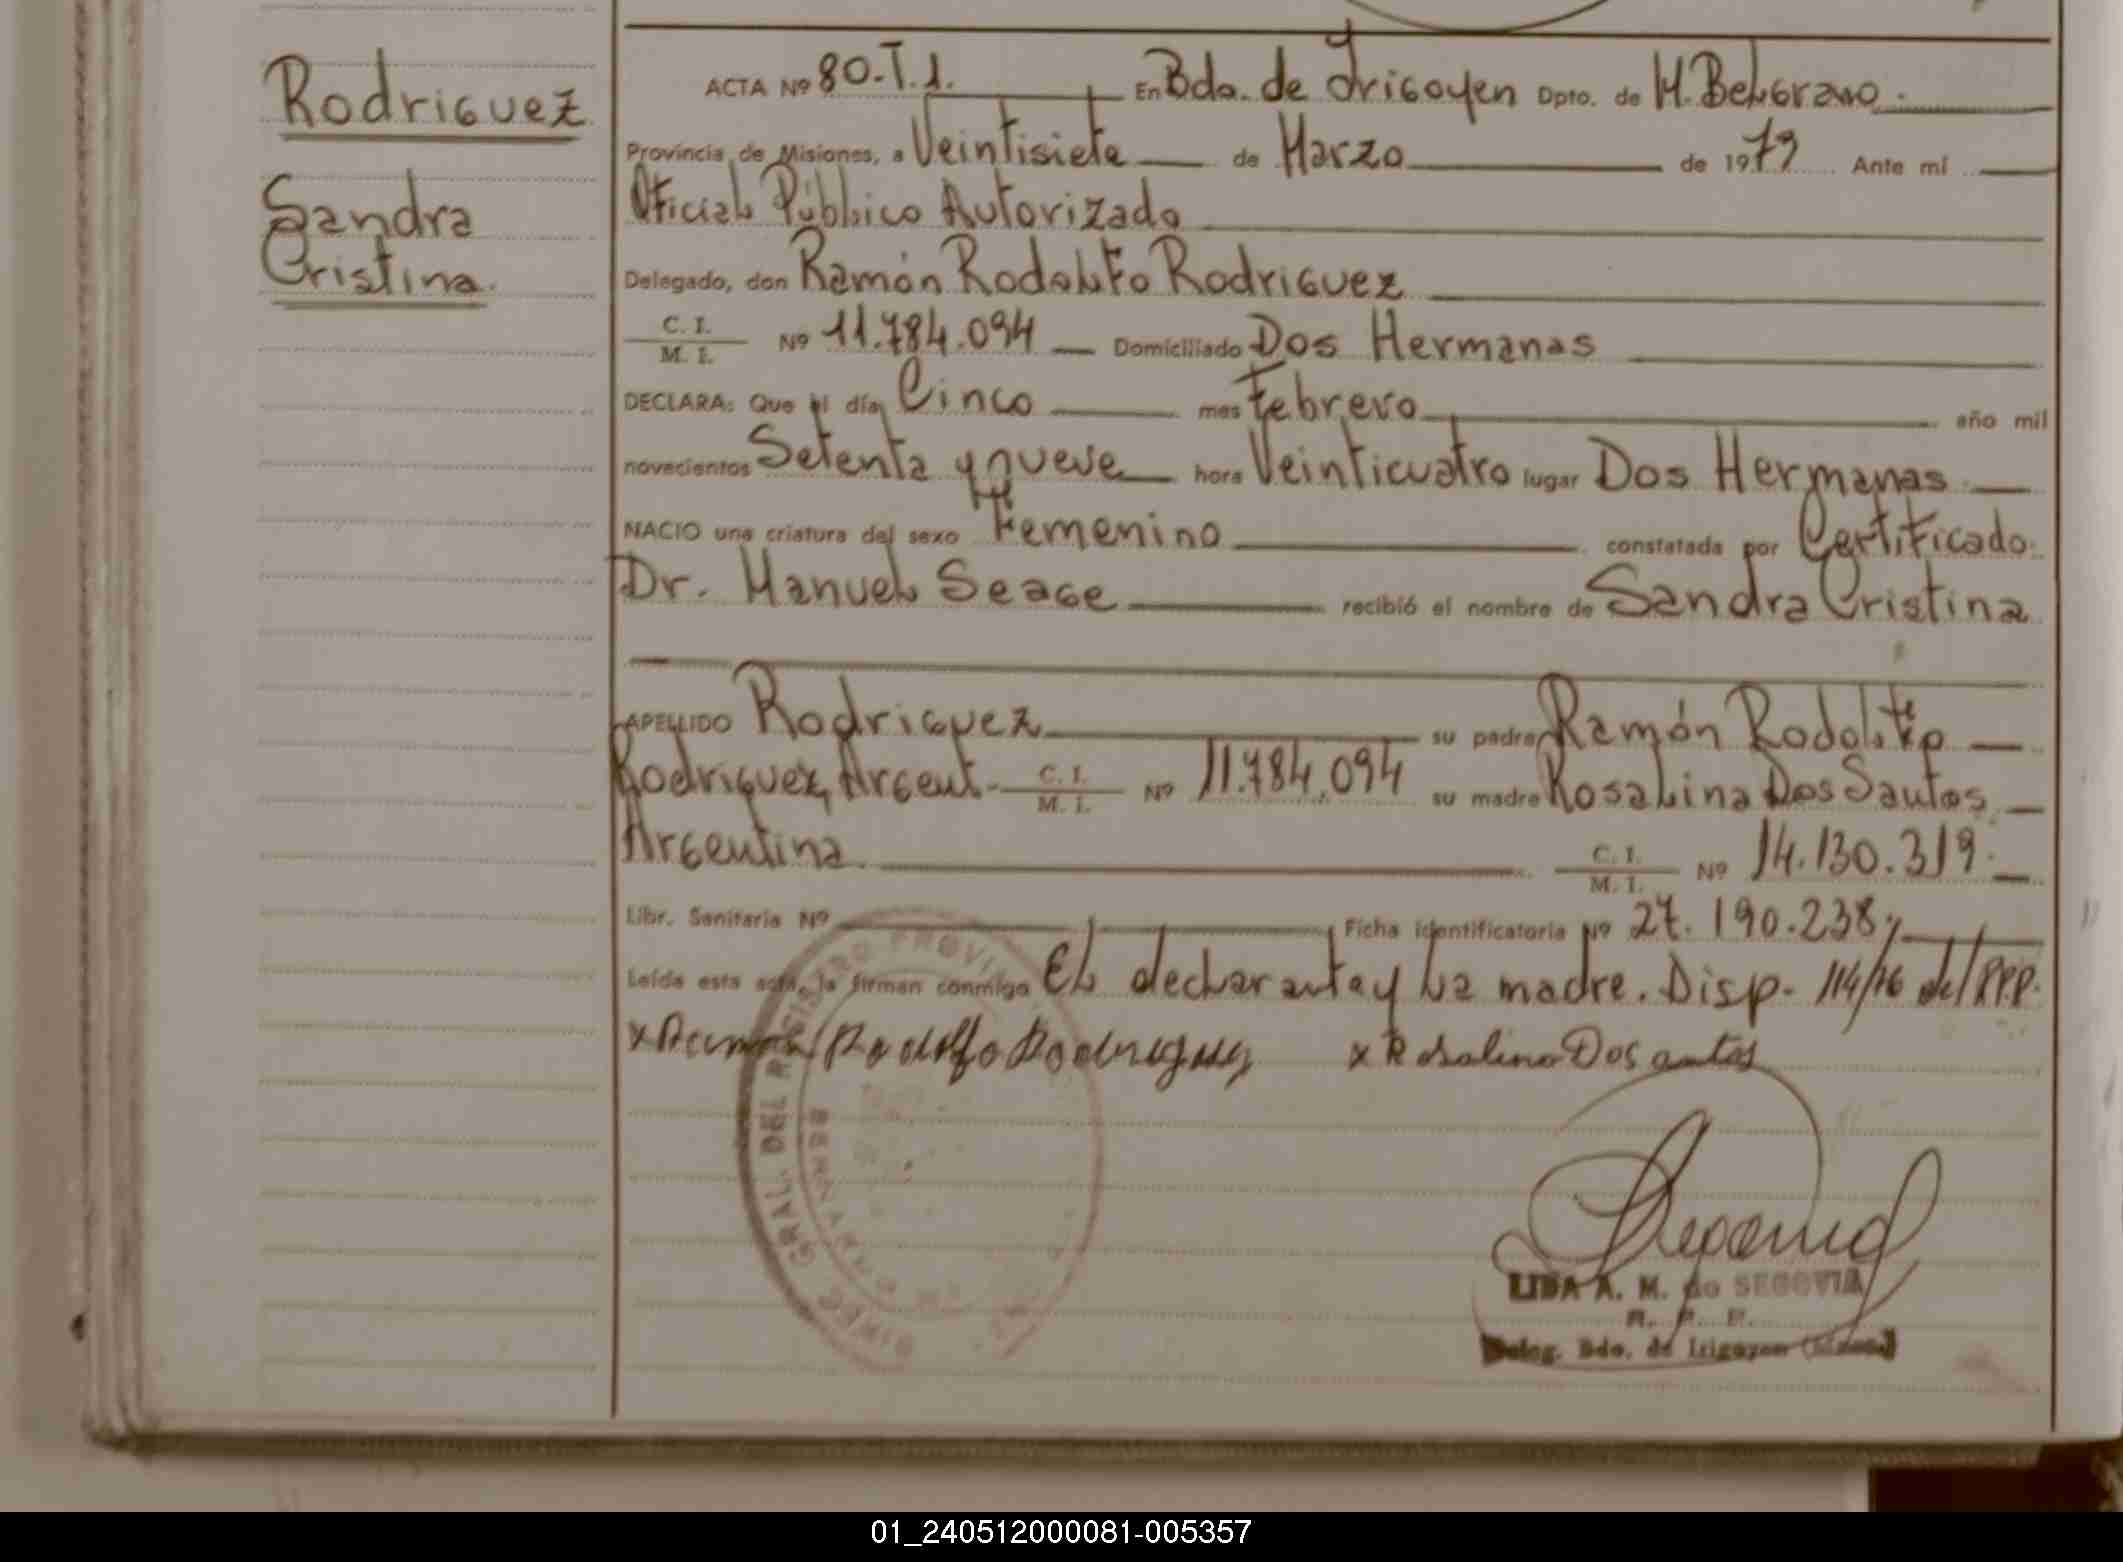 Rodriguez
Sandra
Cristina.
ACTA Nº 80.T.1. En Bdo. de Irigoyen Dpto. de M. Belgrano.
Provincia de Misiones, a Veintisiete de Marzo de 1979 Ante mí
Oficial Público Autorizado
Delegado, don Ramón Rodolfo Rodriguez
C. I.
M. I. Nº 11.784.094 Domiciliado Dos Hermanas
DECLARA: Que el día Cinco mes Febrero año mil
novecientos Setenta y nueve hora Veinticuatro lugar Dos Hermanas
NACIO una criatura del sexo Femenino constatada por Certificado.
Dr. Manuel Seage recibió el nombre de Sandra Cristina
APELLIDO Rodriguez su padre Ramón Rodolfo
Rodriguez, Argent. C. I. M. I. Nº 11.784.094 su madre Rosalina Dos Santos
Argentina C. I. M. I. Nº 14.130.319.
Libr. Sanitaria Nº Ficha identificatoria Nº 27.190.238,
Leída esta acta, la firman conmigo El declarante y La madre. Disp. 114/76 del RPP.
x Ramon Rodolfo Rodriguez x Rosalina Dos antos
DIREC. GRAL. DEL REGISTRO PROVI
LIDA A. M. de SEGOVIA
R. P. P.
Deleg. Bdo. de Irigoyen
01_240512000081-005357